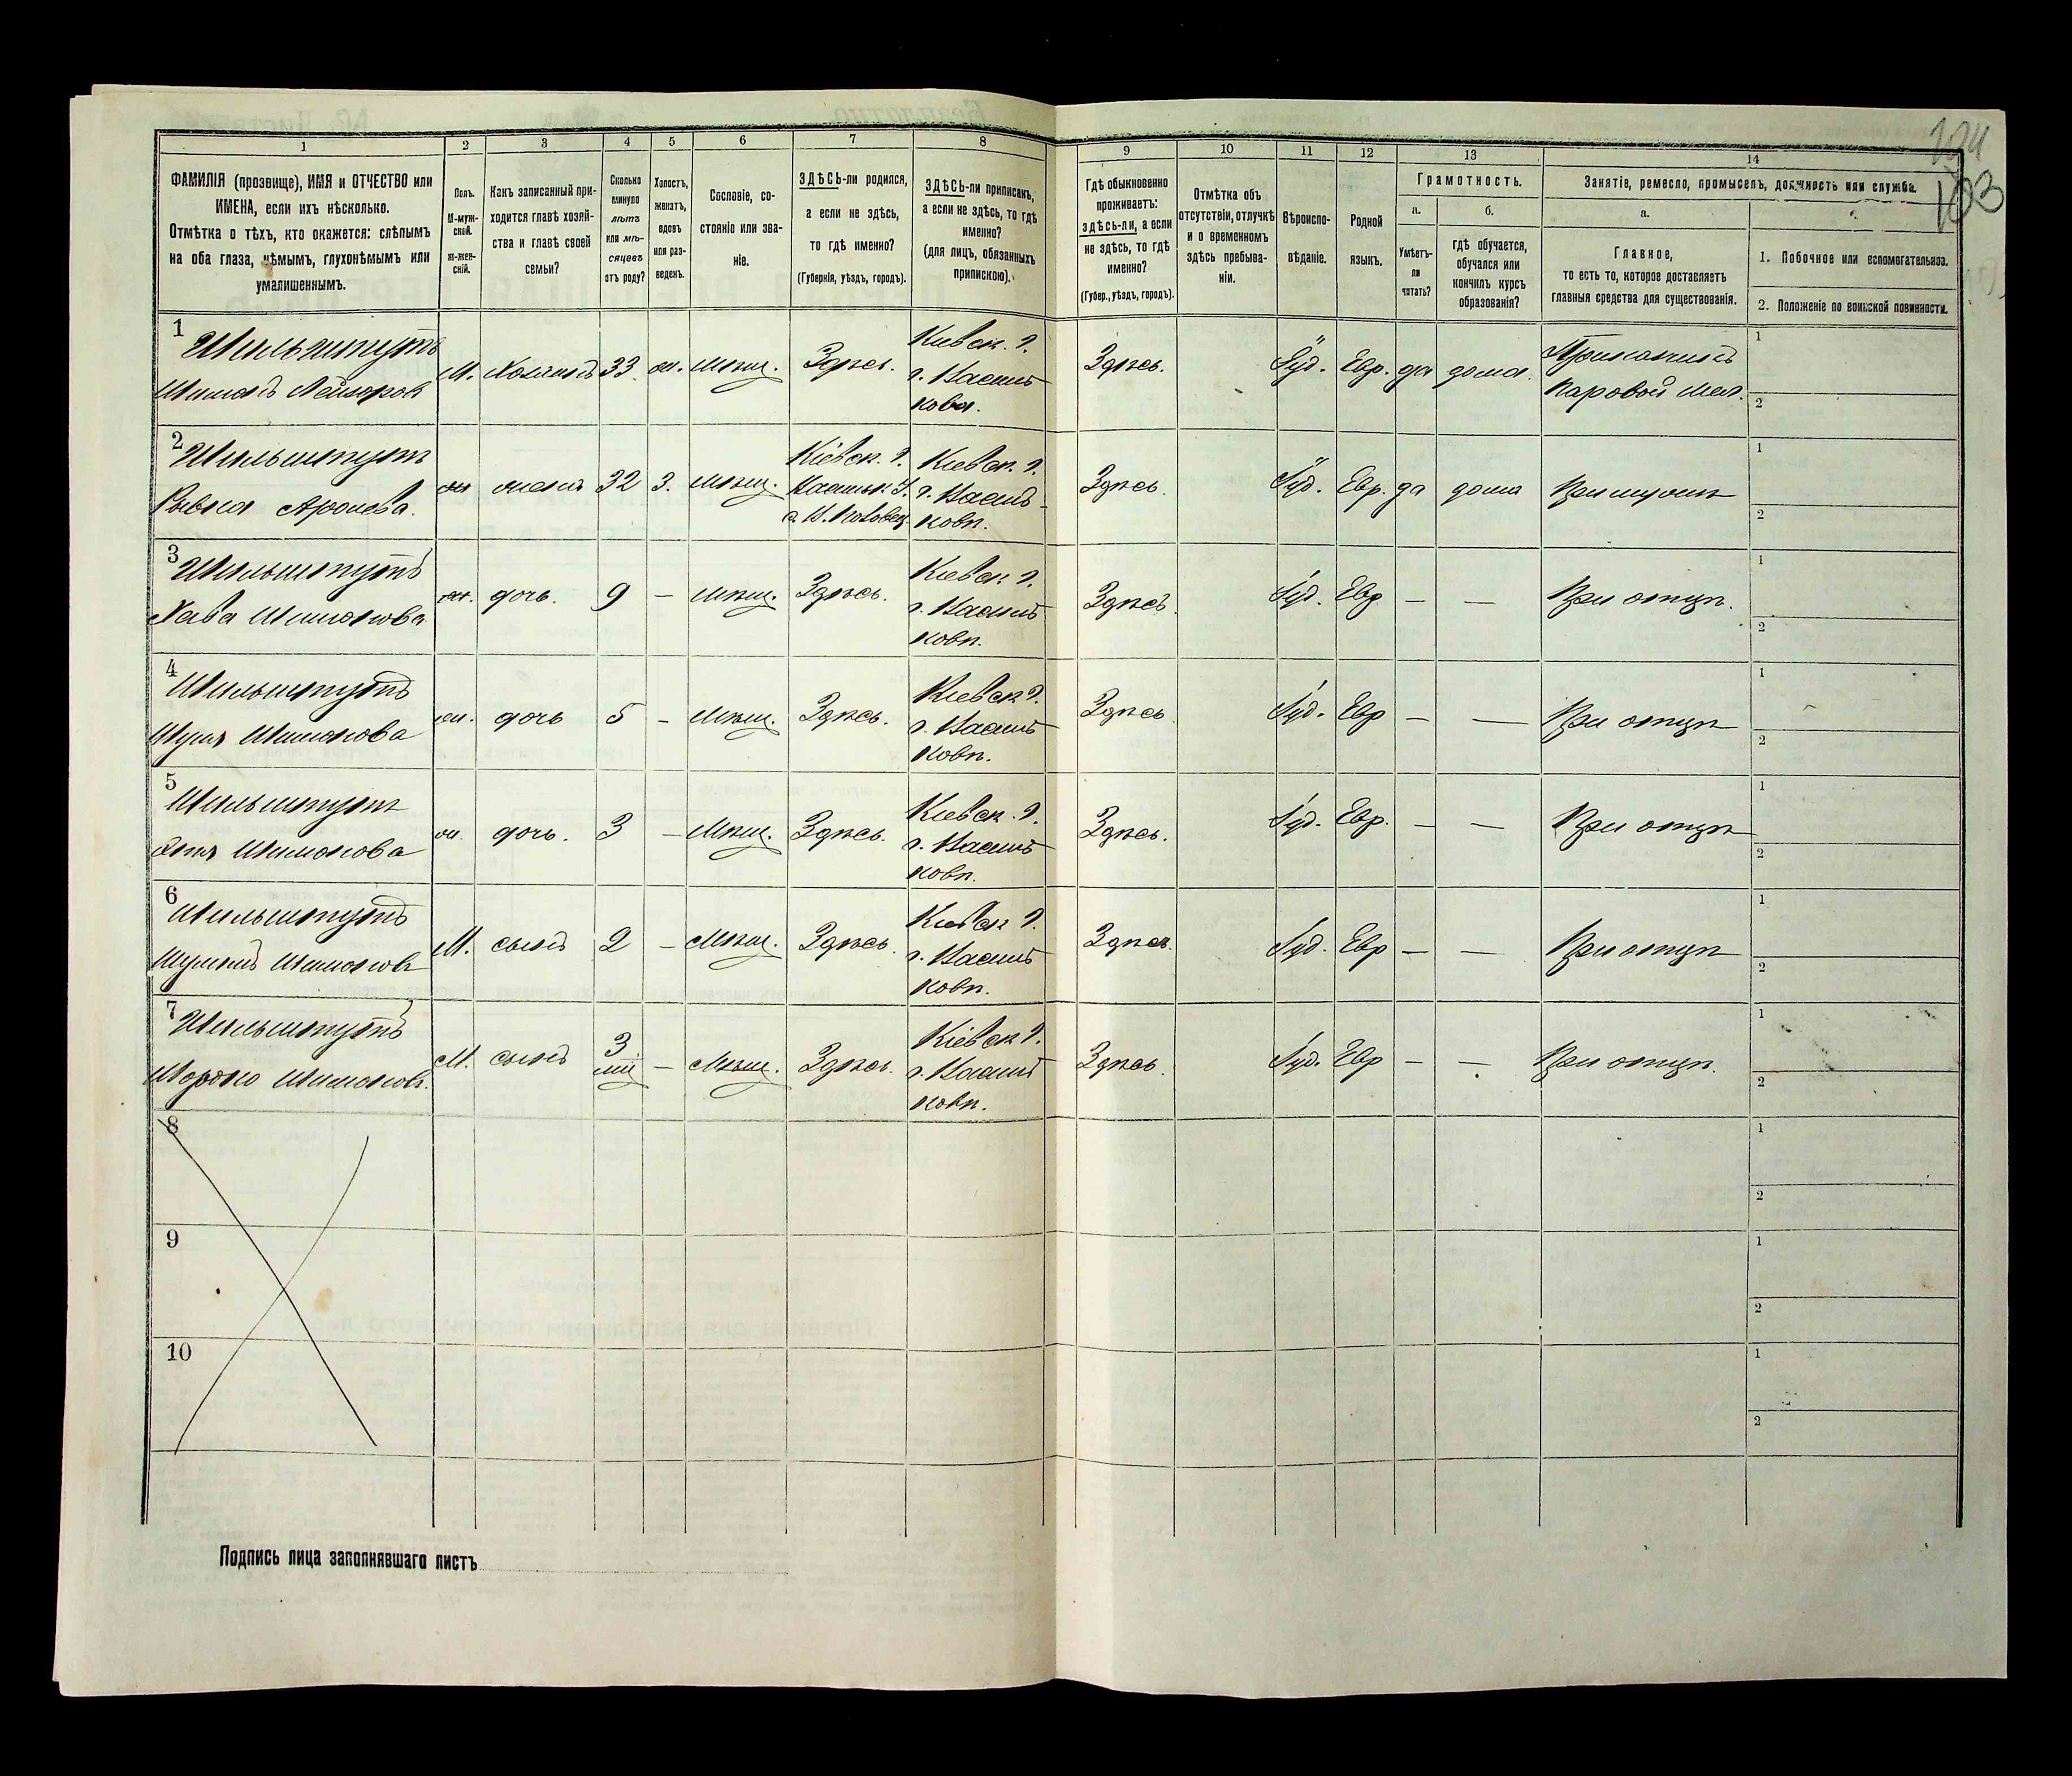 104
103
1
2
3
4
5
6
7
8
9
10
11
12
13
14
ФАМИЛІЯ (прозвище), ИМЯ и ОТЧЕСТВО или
ИМЕНА, если ихъ нѣсколько.
Отмѣтка о тѣхъ, кто окажется: слѣпымъ
на оба глаза, нѣмымъ, глухонѣмымъ или
умалишеннымъ.
Полъ.
М-муж-
ской.
Ж-жен-
скій.
Какъ записанный при-
ходится главѣ хозяй-
ства и главѣ своей
семьи?
Сколько
минуло
лѣтъ
или мѣ-
сяцевъ
отъ роду?
Холостъ,
женатъ,
вдовъ
или раз-
веденъ.
Сословіе, со-
стояніе или зва-
ніе.
ЗДѢСЬ-ли родился,
а если не здѣсь,
то гдѣ именно?
(Губернія, уѣздъ, городъ).
ЗДѢСЬ-ли приписанъ,
а если не здѣсь, то гдѣ
именно?
(для лицъ, обязанныхъ
припискою).
Гдѣ обыкновенно
проживаетъ:
здѣсь-ли, а если
не здѣсь, то гдѣ
именно?
(Губер., уѣздъ, городъ).
Отмѣтка объ
отсутствіи, отлучкѣ
и о временномъ
здѣсь пребыва-
ніи.
Вѣроиспо-
вѣданіе.
Родной
языкъ.
Грамотность.
а.
б.
Умѣетъ-
ли
читать?
гдѣ обучается,
обучался или
кончилъ курсъ
образованія?
Занятіе, ремесло, промыселъ, должность или служба.
а.
Главное,
то есть то, которое доставляетъ
главныя средства для существованія.
1. Побочное или вспомогательное.
2. Положеніе по воинской повинности.
1
М. Хозяинъ 33 ж. Мѣщ. Здѣсь. Кіевск. г.
г. Василь
кова.
Здѣсь. Іуд. Евр. да дома. Прикащикъ
паровой мел.
1
2
2
жена 32 З. Мѣщ. Кіевск. г.
Васильк. у.
Кіевск. г.
г. Василь-
ковѣ.
Здѣсь. Іуд. Евр. да дома При мужѣ
1
2
3
Хава Шимонова дочь. 9 — Мѣщ. Здѣсь. Кіевск г.
г. Василь
ковѣ.
Здѣсь. Іуд. Евр — — При отцѣ.
1
2
4
Шимонова дочь 5 - Мѣщ. Здѣсь. Кіевск г.
г. Василь
ковѣ.
Здѣсь Іуд. Евр — — При отцѣ
1
2
5
Шимонова дочь. 3 — Мѣщ. Здѣсь. Кіевск. г.
г. Василь
ковѣ.
Здѣсь. Іуд. Евр. — — При отцѣ
1
2
6
М. сынъ 2 — Мѣщ. Здѣсь Кіевск г.
г. Василь
ковѣ.
Здѣсь. Іуд. Евр — — При отцѣ
1
2
7
М. сынъ 3 — Мѣщ. Здѣсь. Кіевск г.
г. Василь
ковѣ.
Здѣсь Іуд. Евр — — При отцѣ.
1
2
8
1
2
9
1
2
10
1
2
Подпись лица заполнявшаго листъ